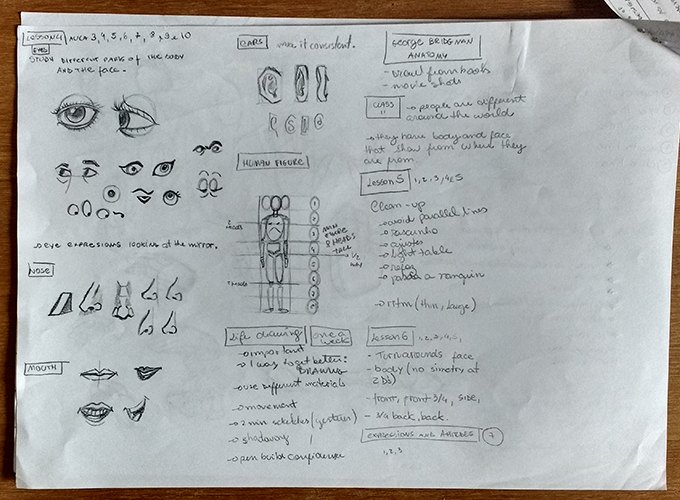 LESSON 4 / AULA 3, 4, 5, 6, 7, 8, 9 e 10
EYES
STUDY DIFFERENT PARTS OF THE BODY
AND THE FACE.
→ EYE EXPRESSIONS LOOKING AT THE MIRROR.
NOSE
MOUTH
EARS make it consistent.
HUMAN FIGURE
HUMAN
FIGURE
8 HEADS
TALL
1/2
Life drawing once a
week
→ important
→ 1 way to get better:
DRAWING
→ use different materials
→ movement
→ 2 min sketches (gesture)
→ shadowing
→ pen build confidence
George BRIDGMAN
ANATOMY
- Draw from books
- movie shots
CLASS
11
→ people are different
around the world
→ they have body and face
that show from where they
are from.
Lesson 5 1, 2, 3, 4, 5
Clean-up
→ avoid parallel lines
→ rascunho
→ ajustes
→ light table
→ refaz
→ passa a nanquim
→ (thin, large)
Lesson 6 1, 2, 3, 4, 5,
- Turnarounds face
- body (no simetry at
2D's)
- front, front 3/4, side,
- 3/4 back, back.
EXPRESSIONS AND ATTITUDES 7
1, 2, 3